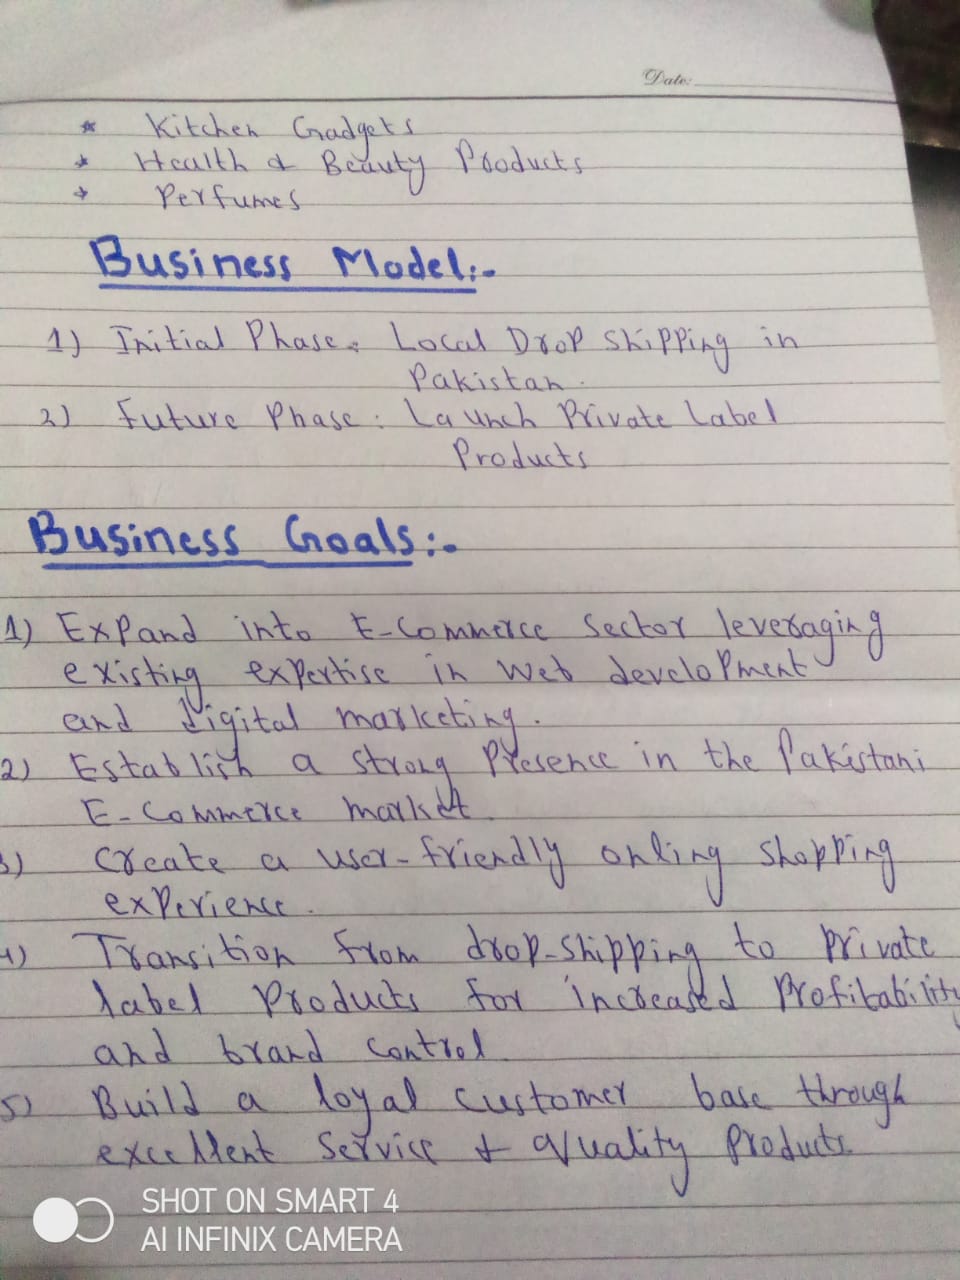 Date:
* Kitchen Gadgets
* Health & Beauty Products
* Perfumes
Business Model:-
1) Initial Phase: Local Drop shipping in
Pakistan.
2) Future Phase: Launch Private Label
Products
Business Goals:-
1) Expand into E-Commerce Sector leveraging
existing expertise in Web development
and Digital marketing.
2) Establish a strong Presence in the Pakistani
E-Commerce market.
3) Create a user-friendly onling shopping
experience.
4) Transition from drop-shipping to private
label Products for increased Profitability
and brand control.
5) Build a loyal customer base through
excellent Service & quality Products.
SHOT ON SMART 4
AI INFINIX CAMERA